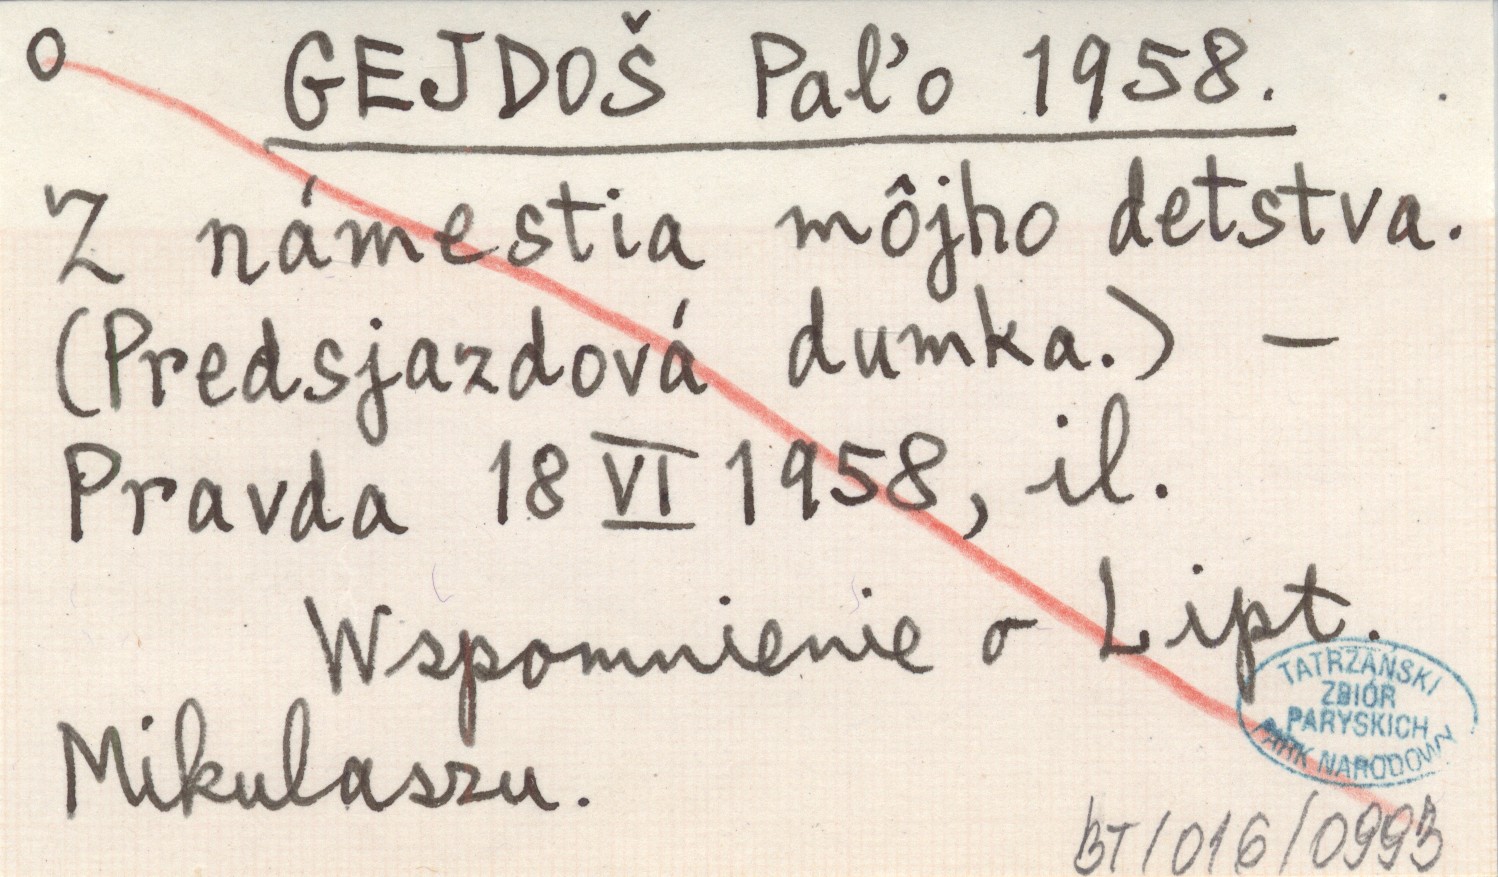 O GEJDOŠ Paľo 1958.
Z námestia môjho detstva.
(Predsjazdová dumka.) —
Pravda 18 VI 1958, il.
Wspomnienie o Lipt.
Mikulaszu.
TATRZAŃSKI
ZBIÓR
PARYSKICH
PARK NARODOWY
BT/016/0993